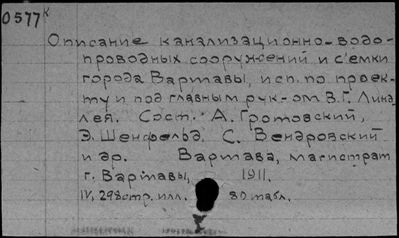 0577к
Описание канализационно-водо-
проводных сооружений и с'емки
города Варшавы, исп. по проек-
ту и под главным рук-ом В.Г. Линд-
лея. Сост. А. Гротовский,
Э. Шенфельд, С. Вендровский
и др. Варшава, магистрат
г. Варшавы, 1911.
IV, 298стр. илл. 80 табл.